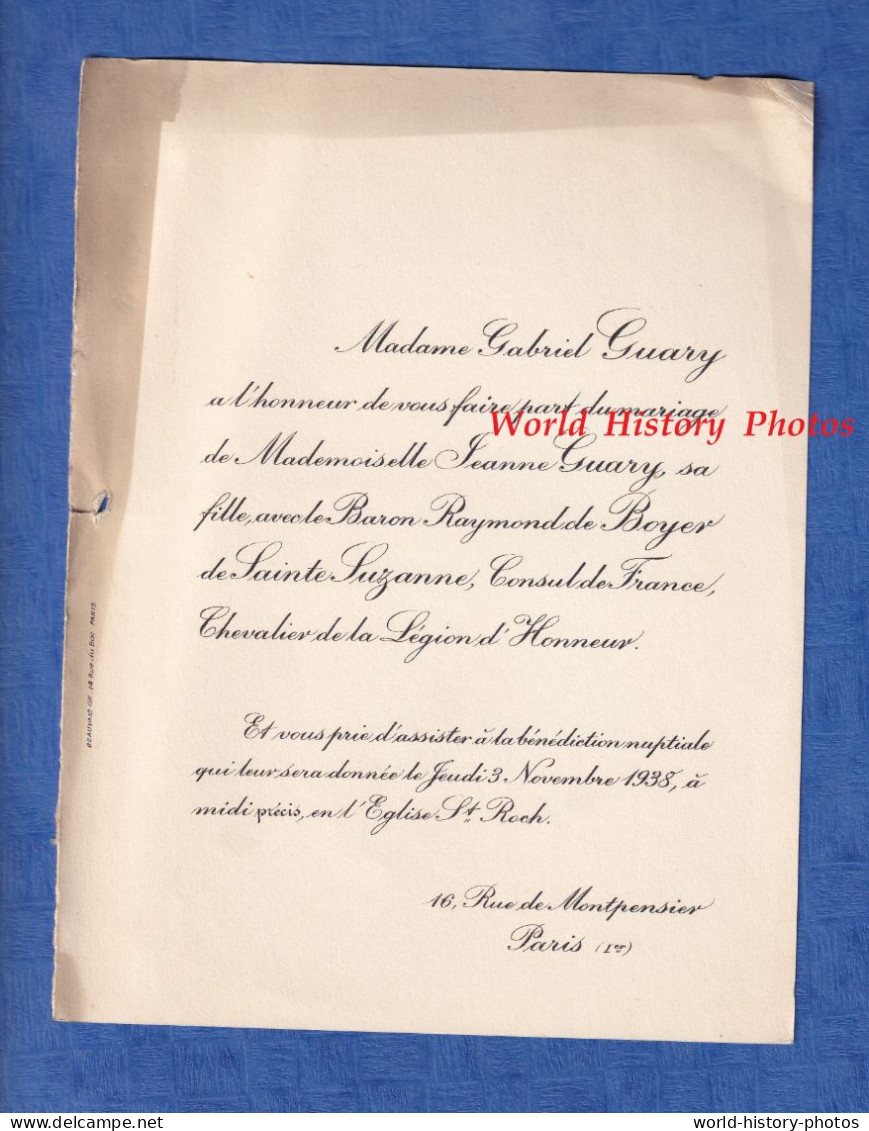 Madame Gabriel Guary
a l'honneur de vous faire part du mariage
World History Photos
de Mademoiselle Jeanne Guary, sa
fille, avec le Baron Raymond de Boyer
de Sainte Suzanne, Consul de France,
Chevalier de la Légion d'Honneur.
Et vous prie d'assister à la bénédiction nuptiale
qui leur sera donnée le Jeudi 3 Novembre 1938, à
midi précis, en l'Eglise St Roch.
16, Rue de Montpensier
Paris (Ier)
BEAUVAIS GR. 14 Rue du Bac PARIS
delcampe.net
world-history-photos